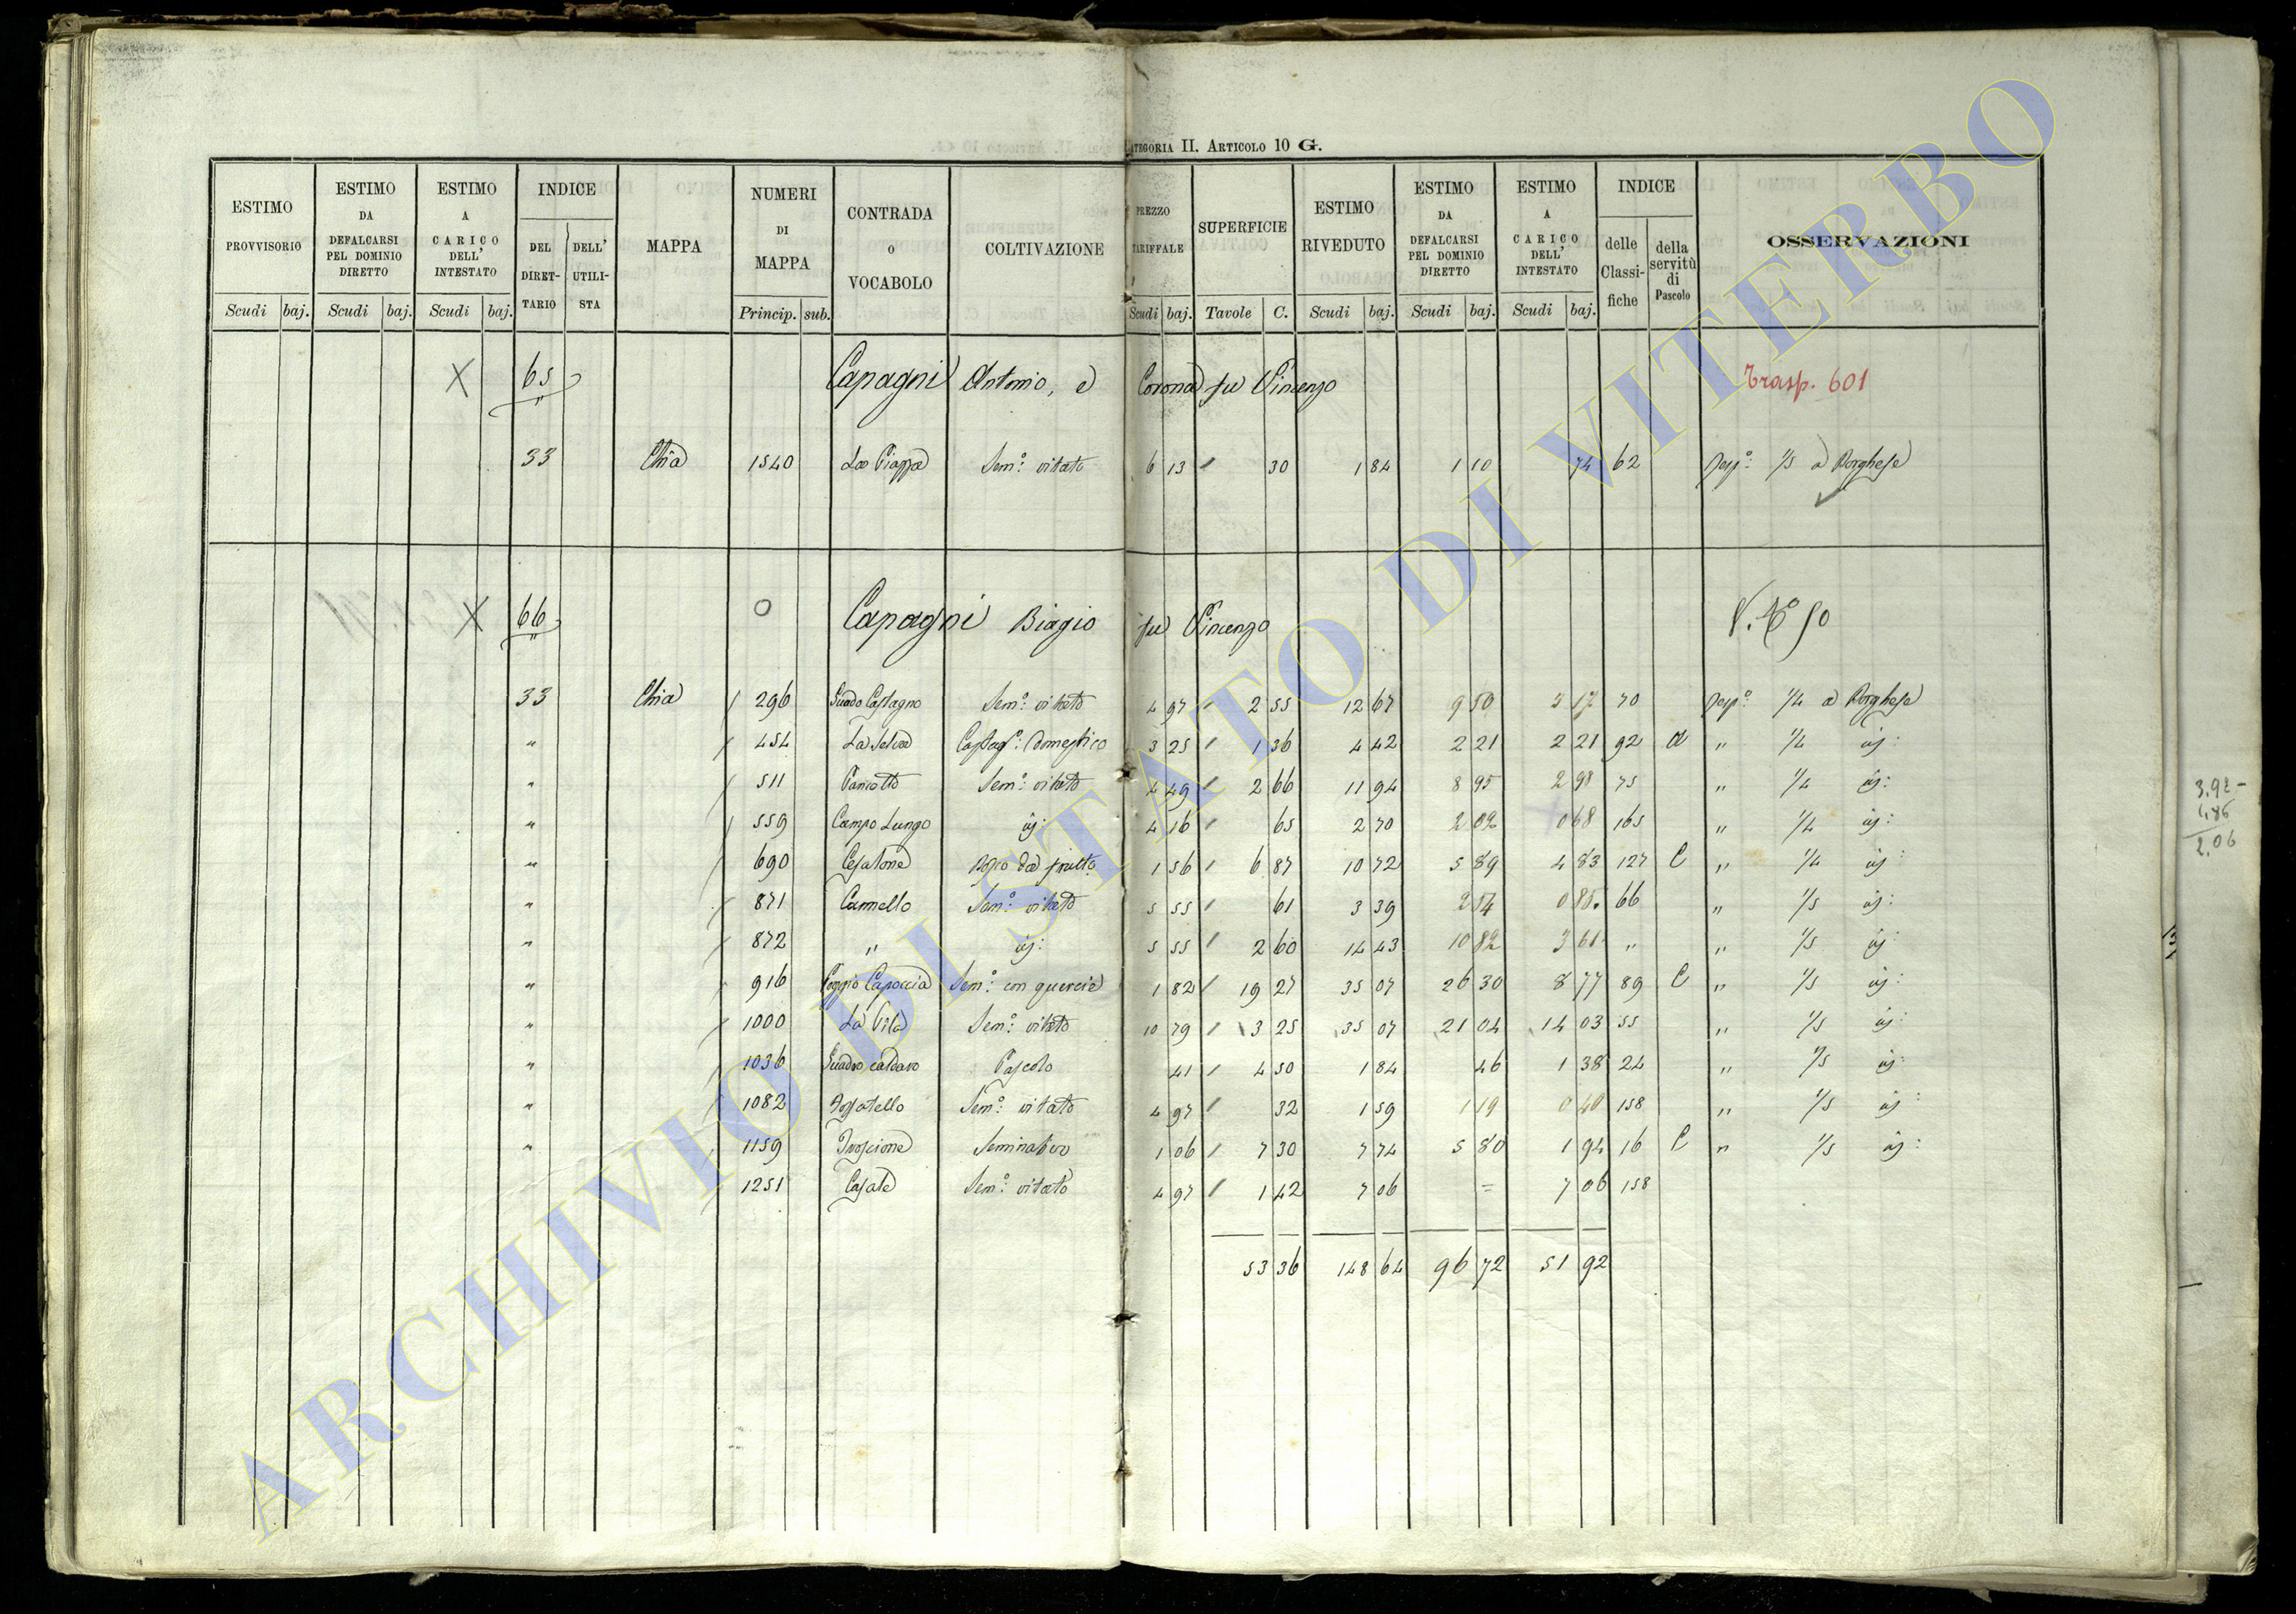 CATEGORIA II. ARTICOLO 10 G.
ESTIMO PROVVISORIO Scudi baj.
ESTIMO DA DEFALCARSI PEL DOMINIO DIRETTO Scudi baj.
ESTIMO A CARICO DELL' INTESTATO Scudi baj.
INDICE DEL DIRETTARIO DELL' UTILISTA
MAPPA
NUMERI DI MAPPA Princip. sub.
CONTRADA O VOCABOLO
COLTIVAZIONE
PREZZO TARIFFALE Scudi baj.
SUPERFICIE Tavole C.
ESTIMO RIVEDUTO Scudi baj.
ESTIMO DA DEFALCARSI PEL DOMINIO DIRETTO Scudi baj.
ESTIMO A CARICO DELL' INTESTATO Scudi baj.
INDICE delle Classifiche della servitù di Pascolo
OSSERVAZIONI
X 65 Capagni Antonio, e Corona fu Vincenzo Trasp. 601
33 Chia 1540 La Piazza Sem.º vitato 6 13 30 1 84 1 10 74 62 1/5 a Borghese
X 66 O Capagni Biagio fu Vincenzo V. Nº 50
33 Chia 296 Guado Castagno Sem.º vitato 4 97 2 55 12 67 9 50 3 17 70 1/4 a Borghese
" 454 La Selva Castag.º domestico 3 25 1 36 4 42 2 21 2 21 92 a " 1/4 id:
" 511 Sem.º vitato 4 49 2 66 11 94 8 95 2 98 75 " 1/4 id:
" 559 Campo Lungo id: 4 16 65 2 70 2 02 0 68 165 " 1/4 id:
" 690 Cesalone da frutto 1 56 6 87 10 72 5 89 4 83 127 C " 1/4 id:
" 871 Cannello Sem.º vitato 5 55 61 3 39 2 54 0 85 66 " 1/5 id:
" 872 " id: 5 55 2 60 14 43 10 82 3 61 " " 1/5 id:
" 916 Poggio Capoccia Sem.º con quercie 1 82 19 27 35 07 26 30 8 77 89 C " 1/5 id:
" 1000 La Vila Sem.º vitato 10 79 3 25 35 07 21 04 14 03 55 " 1/5 id:
" 1036 Pascolo 41 4 50 1 84 46 1 38 24 " 1/5 id:
" 1082 Fossatello Sem.º vitato 4 97 32 1 59 1 19 0 40 158 " 1/5 id:
" 1159 Seminativo 1 06 7 30 7 74 5 80 1 94 16 C " 1/5 id:
1251 Casale Sem.º vitato 4 97 1 42 7 06 = 7 06 158
53 36 148 64 96 72 51 92
2.06
ARCHIVIO DI STATO DI VITERBO